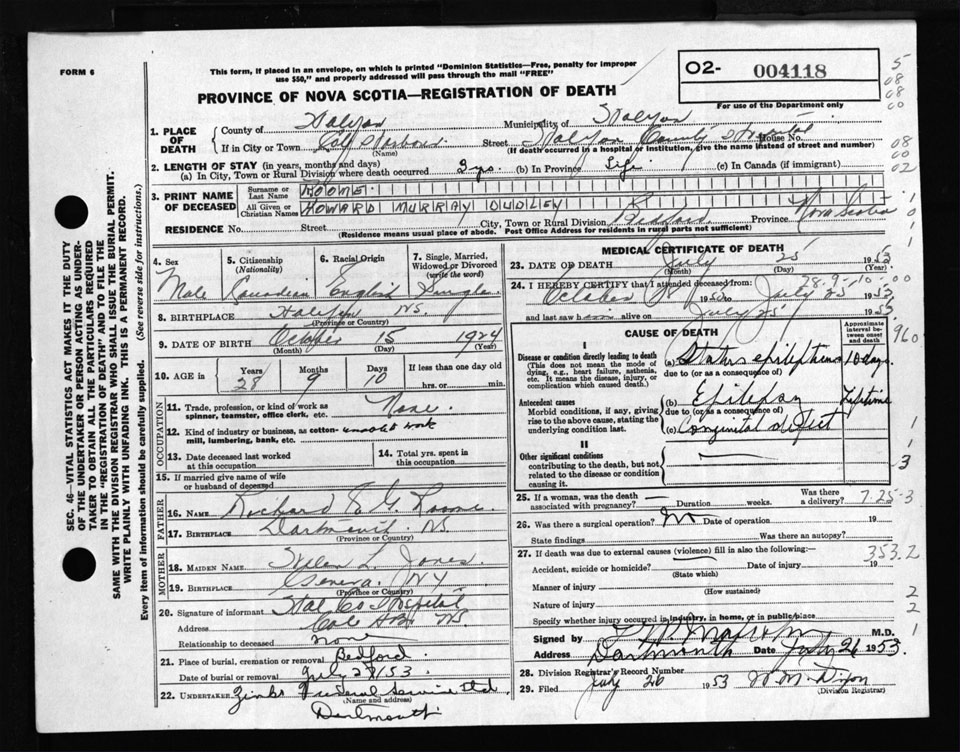 FORM 6
This form, if placed in an envelope, on which is printed "Dominion Statistics—Free, penalty for improper
use $50," and properly addressed will pass through the mail "FREE"
PROVINCE OF NOVA SCOTIA—REGISTRATION OF DEATH
O2- 004118
For use of the Department only
5
08
08
00
08
00
02
1. PLACE OF DEATH
County of Halifax Municipality of Halifax
If in City or Town Cole Harbour (Name) Street Halifax County Hospital House No.
(If death occurred in a hospital or institution, give the name instead of street and number)
2. LENGTH OF STAY (in years, months and days)
(a) In City, Town or Rural Division where death occurred 3 yrs. (b) In Province Life (c) In Canada (if immigrant)
3. PRINT NAME OF DECEASED
Surname or Last Name ROOME
All Given or Christian Names HOWARD MURRAY DUDLEY
RESIDENCE No. Street City, Town or Rural Division Bedford Province Nova Scotia
(Residence means usual place of abode. Post Office Address for residents in rural parts not sufficient)
SEC. 46—VITAL STATISTICS ACT MAKES IT THE DUTY
OF THE UNDERTAKER OR PERSON ACTING AS UNDER-
TAKER TO OBTAIN ALL THE PARTICULARS REQUIRED
IN THE "REGISTRATION OF DEATH" AND TO FILE THE
SAME WITH THE DIVISION REGISTRAR WHO SHALL ISSUE THE BURIAL PERMIT.
WRITE PLAINLY WITH UNFADING INK. THIS IS A PERMANENT RECORD.
Every item of information should be carefully supplied. (See reverse side for instructions.)
4. Sex Male
5. Citizenship (Nationality) Canadian
6. Racial Origin English
7. Single, Married, Widowed or Divorced (write the word) Single
8. BIRTHPLACE Halifax NS.
(Province or Country)
9. DATE OF BIRTH October 15 1924
(Month) (Day) (Year)
10. AGE in Years 28 Months 9 Days 10 If less than one day old
hrs. or min.
OCCUPATION
11. Trade, profession, or kind of work as
spinner, teamster, office clerk, etc. None.
12. Kind of industry or business, as cotton- unable to work
mill, lumbering, bank, etc.
13. Date deceased last worked
at this occupation
14. Total yrs. spent in
this occupation
15. If married give name of wife
or husband of deceased
FATHER
16. NAME Richard G. Roome
17. BIRTHPLACE Dartmouth NS.
(Province or Country)
MOTHER
18. MAIDEN NAME Helen L. Jones
19. BIRTHPLACE Geneva. NY
(Province or Country)
20. Signature of informant Hal Co Hospital
Address Cole Hbr NS.
Relationship to deceased none
21. Place of burial, cremation or removal Bedford.
Date of burial or removal July 28/53
22. UNDERTAKER Zinks Funeral Service Ltd.
(Name and address)
Dartmouth
MEDICAL CERTIFICATE OF DEATH
23. DATE OF DEATH July 25 1953
(Month) (Day) (Year)
28-9-10-00
24. I HEREBY CERTIFY that I attended deceased from
October 1950 to July 25 1953
and last saw him alive on July 25 1953
CAUSE OF DEATH
Approximate interval between onset and death
960
I
Disease or condition directly leading to death
(This does not mean the mode of
dying, e.g., heart failure, asthenia,
etc. It means the disease, injury, or
complication which caused death.)
(a) Status epilepticus 10 days.
due to (or as a consequence of)
Antecedent causes
Morbid conditions, if any, giving
rise to the above cause, stating the
underlying condition last.
(b) Epilepsy Lifetime
due to (or as a consequence of)
(c) Congenital defect
II
Other significant conditions
contributing to the death, but not
related to the disease or condition
causing it.
1
3
25. If a woman, was the death
associated with pregnancy? Duration weeks. Was there
a delivery?
7-25-3
26. Was there a surgical operation? No Date of operation 19
State findings Was there an autopsy?
27. If death was due to external causes (violence) fill in also the following:—
353.2
Accident, suicide or homicide? Date of injury 19
(State which)
Manner of injury
(How sustained)
Nature of injury
Specify whether injury occurred in industry, in home, or in public place
2
2
1
Signed by M.D.
Address Dartmouth Date July 26 1953.
28. Division Registrar's Record Number
29. Filed July 26 1953 W. M. Dixon
(Division Registrar)